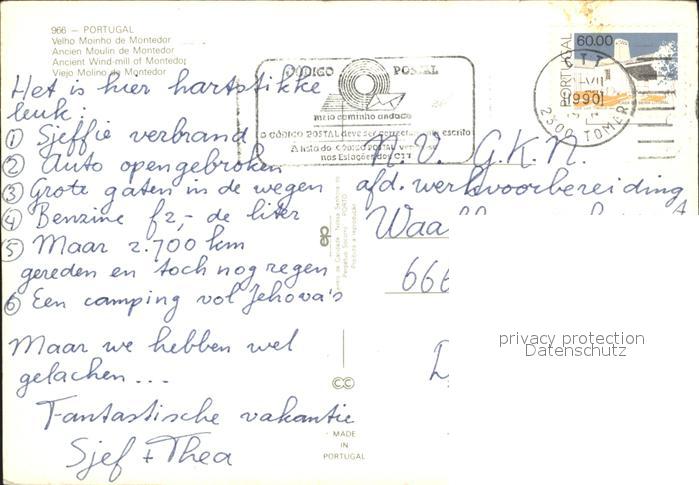 966 – PORTUGAL
Velho Moinho de Montedor
Ancien Moulin de Montedor
Ancient Wind-mill of Montedor
Viejo Molino de Montedor
Het is hier hartstikke
leuk:
① Sjeffie verbrand
② Auto opengebroken
③ Grote gaten in de wegen
④ Benzine f2,- de liter
⑤ Maar 2.700 km
gereden en toch nog regen
⑥ Een camping vol Jehova's
Maar we hebben wel
gelachen...
Fantastische vakantie
Sjef + Thea
CÓDIGO POSTAL
meio caminho andado
O CÓDIGO POSTAL deve ser correctamente escrito
A lista do CÓDIGO POSTAL
nas Estações dos CTT
PORTUGAL
60.00
CTT
1990
2300 TOMAR
N.V. G.K.N.
afd. werkvoorbereiding
Waa
666
ep
MADE
IN
PORTUGAL
privacy protection
Datenschutz